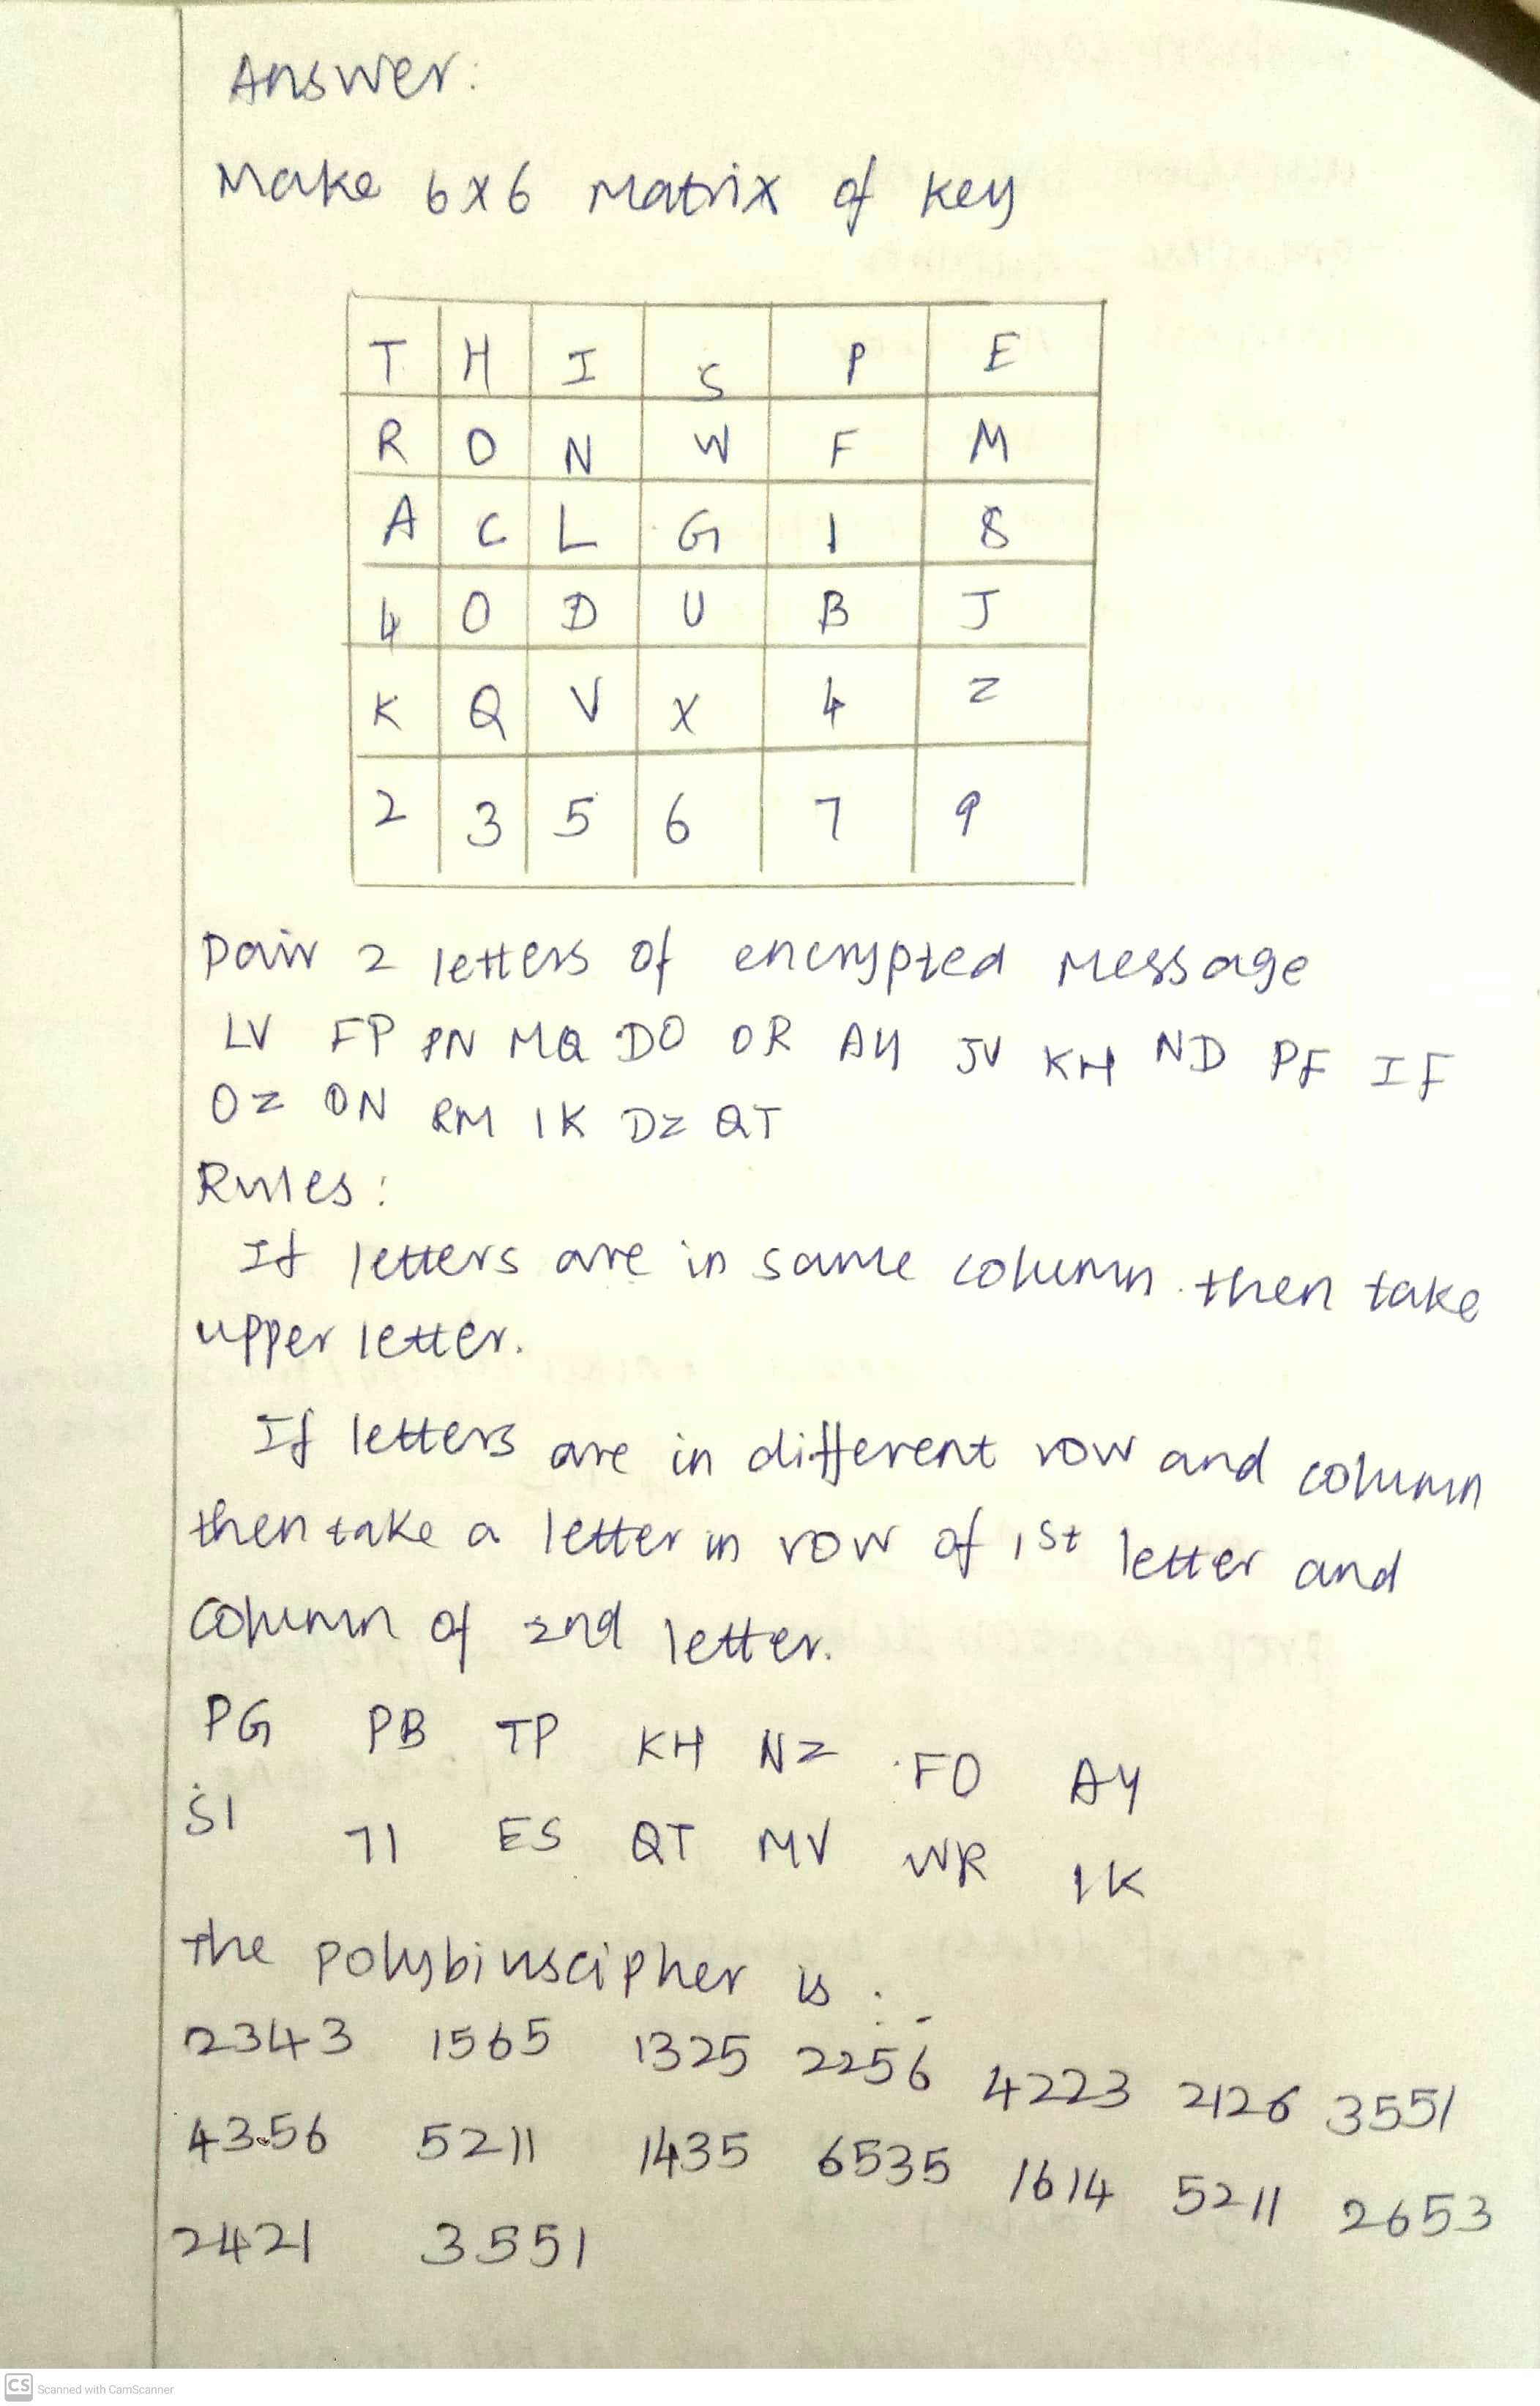 Answer:
Make 6x6 Matrix of key
T H I S P E
R O N W F M
A C L G 1 8
4 0 D U B J
K Q V X 4 Z
2 3 5 6 7 9
Pair 2 letters of encrypted Message
LV FP PN MQ DO OR AY JV KH ND PF IF
OZ ON RM 1K DZ QT
Rules:
If letters are in same column then take
upper letter.
If letters are in different row and column
then take a letter in row of 1st letter and
column of 2nd letter.
PG PB TP KH NZ FO AY
S1 71 ES QT MV WR 1K
The polybiuscipher is :-
2343 1565 1325 2256 4223 2126 3551
4356 5211 1435 6535 1614 5211 2653
2421 3551
CS Scanned with CamScanner